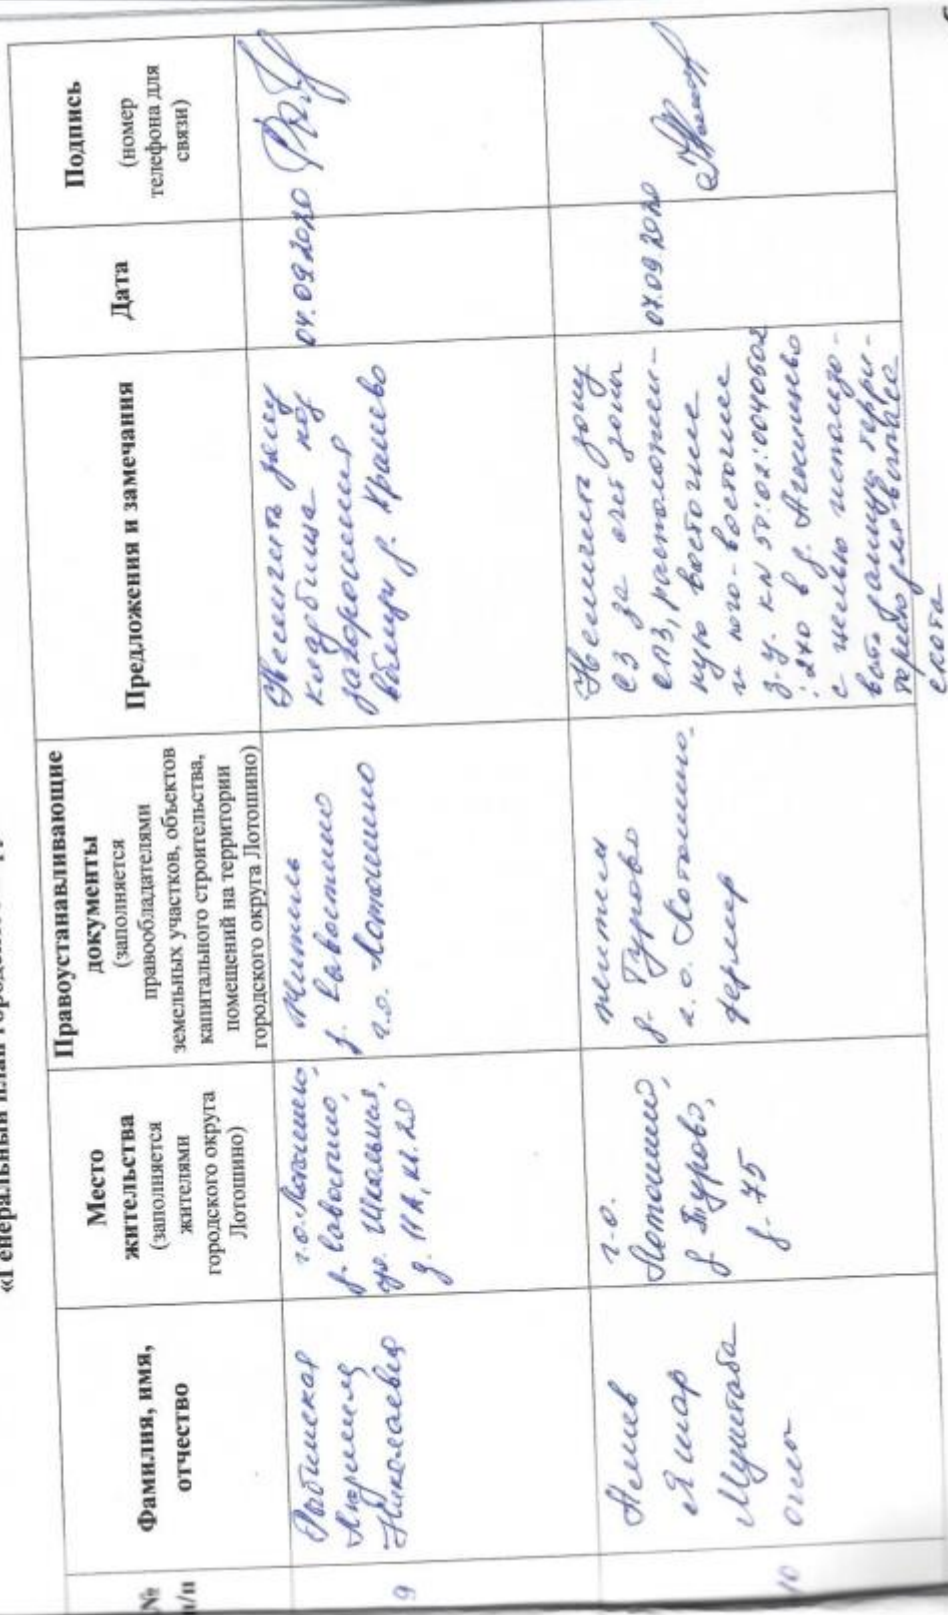 «Генеральный план
№
п/п
Фамилия, имя,
отчество
Место
жительства
(заполняется
жителями
городского округа
Лотошино)
Правоустанавливающие
документы
(заполняется
правообладателями
земельных участков, объектов
капитального строительства,
помещений на территории
городского округа Лотошино)
Предложения и замечания
Дата
Подпись
(номер
телефона для
связи)
9
Людмила
Николаевна
г.о. Лотошино,
д. Савостино,
ул. Школьная,
д. 11А, кв. 20
Житель
д. Савостино
г.о. Лотошино
зону
кладбища под
захоронения
вблизи д. Кралево
04.09.2020
10
Алиев
Яшар
Муштаба
оглы
г.о.
Лотошино,
д. Турово,
д. 75
жители
д. Турово
г.о. Лотошино,
фермер
зону
СЗ за счет зоны
СПЗ, расположен-
ную восточнее
и юго-восточнее
з.у. КN 50:02:0040602
:270 в д.
с целью использо-
вать данную терри-
торию для выпаса
скота
07.09.2020